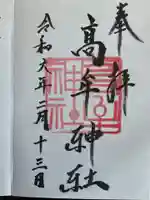 奉拝
高牟神社
令和六年二月十三日